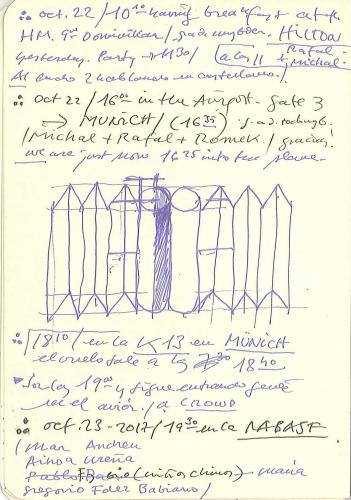 oct. 22 / 10 10 having breakfast at the
HM. Gran Dominikan / HILTON
yesterday. Party → 1130 / a las 11 Rafal
& Michal.
Al cuadro 2 hablando en castellano /
oct 22 / 16 00 in the Airport. gate 3
→ MUNICH / (16 35)
/ Michal + Rafal + Romek / gracias!
we are just now 16 25 into the plane.
18 10 / en la K 13 en MÜNICH
el vuelo sale a las 18 40
Son las 19 00 y sigue entrando gente
en el avión / a CROWD
oct. 23 - 2017 / 19 30 en la RABASF
/ Mar Andreu
Ainoa Ureña
(niños chinos) María
Gregorio Fdez Babiano /